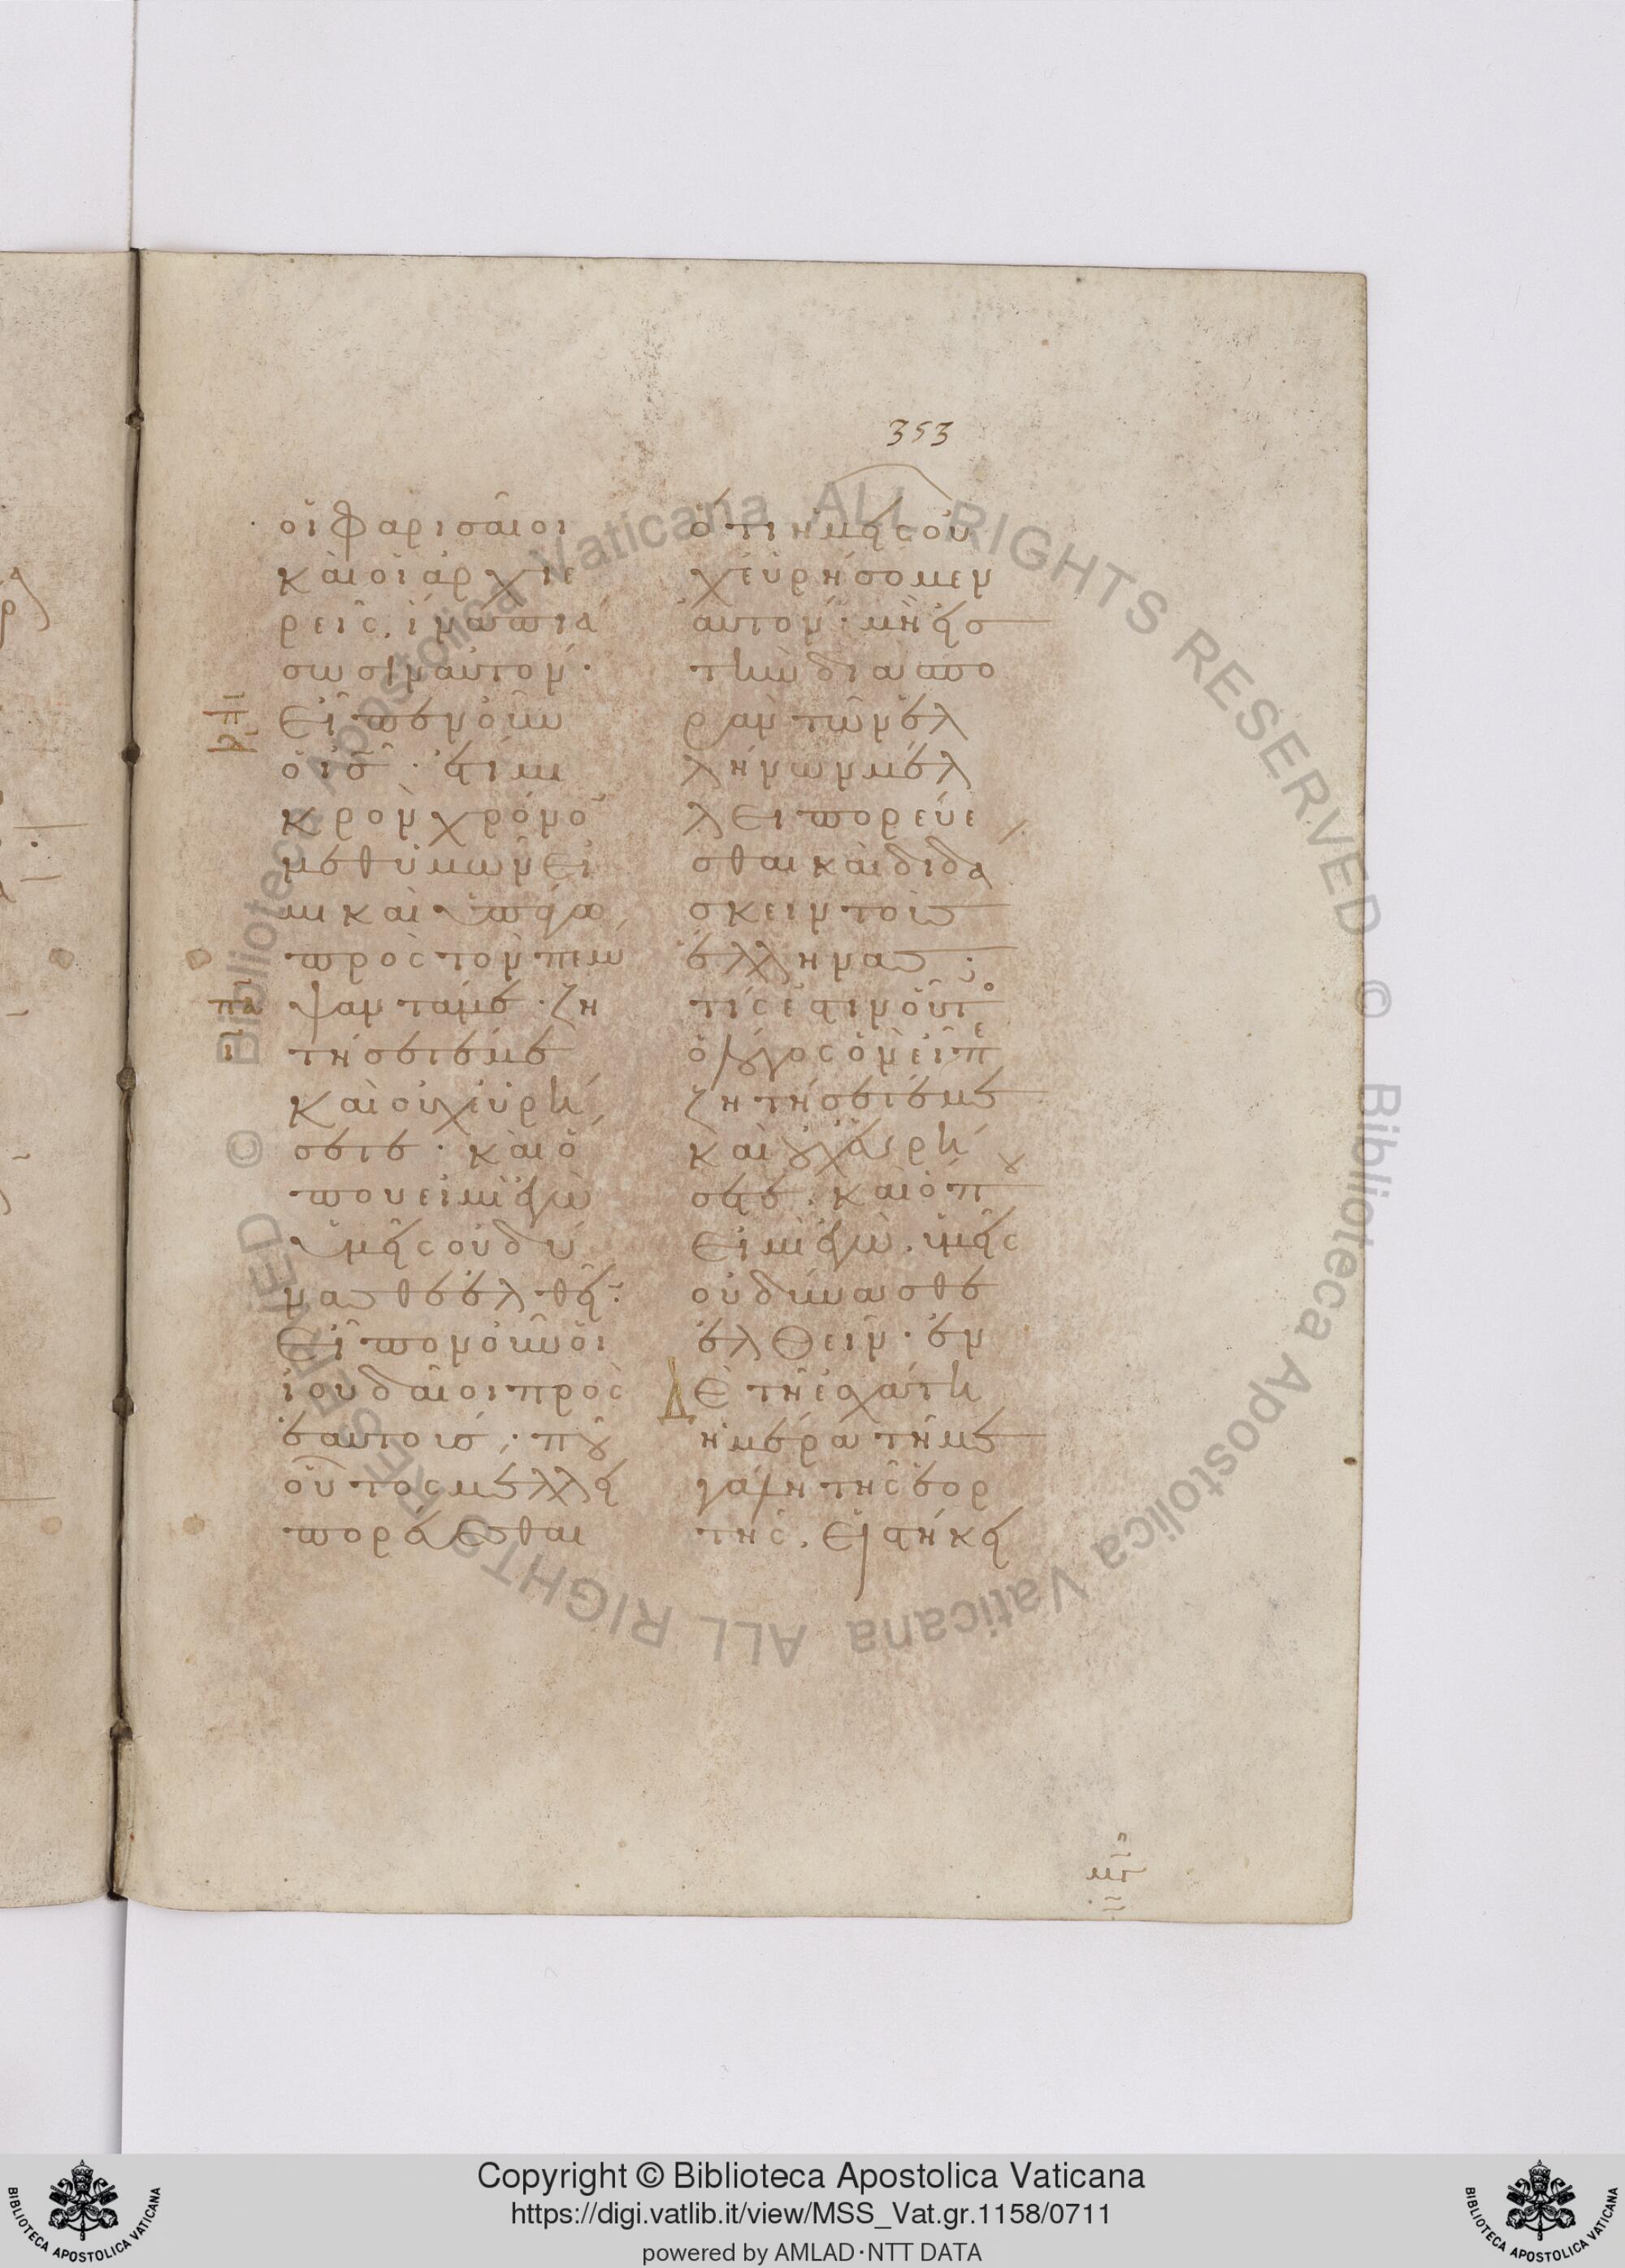 353
οἱ φαρισαῖοι
καὶ οἱ ἀρχιε
ρεῖς, ἵνα πιά
σωσιν αὐτόν·
Εἶπεν οὖν
ὁ ις̅· ἔτι μι
κρὸν χρόνο̅
μεθ ὑμῶν εἰ
μι καὶ ὑπάγω
πρὸς τὸν πέμ
ψαντά με· ζη
τήσετέ με
καὶ οὐχ εὑρή
σετε· καὶ ὅ
που εἰμὶ ἐγὼ
ὑμεῖς οὐ δύ
νασθε ἐλθεῖ̅:
Εἶπον οὖν οἱ
ἰουδαῖοι πρὸς
ἑαυτούς, ποῦ
οὗτος μέλλει
πορεύεσθαι
ὅτι ἡμεῖς οὐ
χ εὑρήσομεν
αὐτόν· μὴ εἰς
τὴν διασπο
ρὰν τῶν ἑλ
λήνων μέλ
λει πορεύε
σθαι καὶ διδά
σκειν τοὺς
ἕλληνας;
τίς ἐστιν οὗτο
ὁ λόγος ὃν εἶπε
ζητήσετέ με
καὶ οὐχ εὑρή
σετε. καὶ ὅπου
εἰμὶ ἐγὼ. ὑμεῖς
οὐ δύνασθε
ἐλθεῖν· Ἐν
δὲ τῇ ἐσχάτῃ
ἡμέρᾳ τῇ με
γάλῃ τῆς ἑορ
τῆς. Εἱστήκει
Copyright © Biblioteca Apostolica Vaticana
https://digi.vatlib.it/view/MSS_Vat.gr.1158/0711
powered by AMLAD·NTT DATA